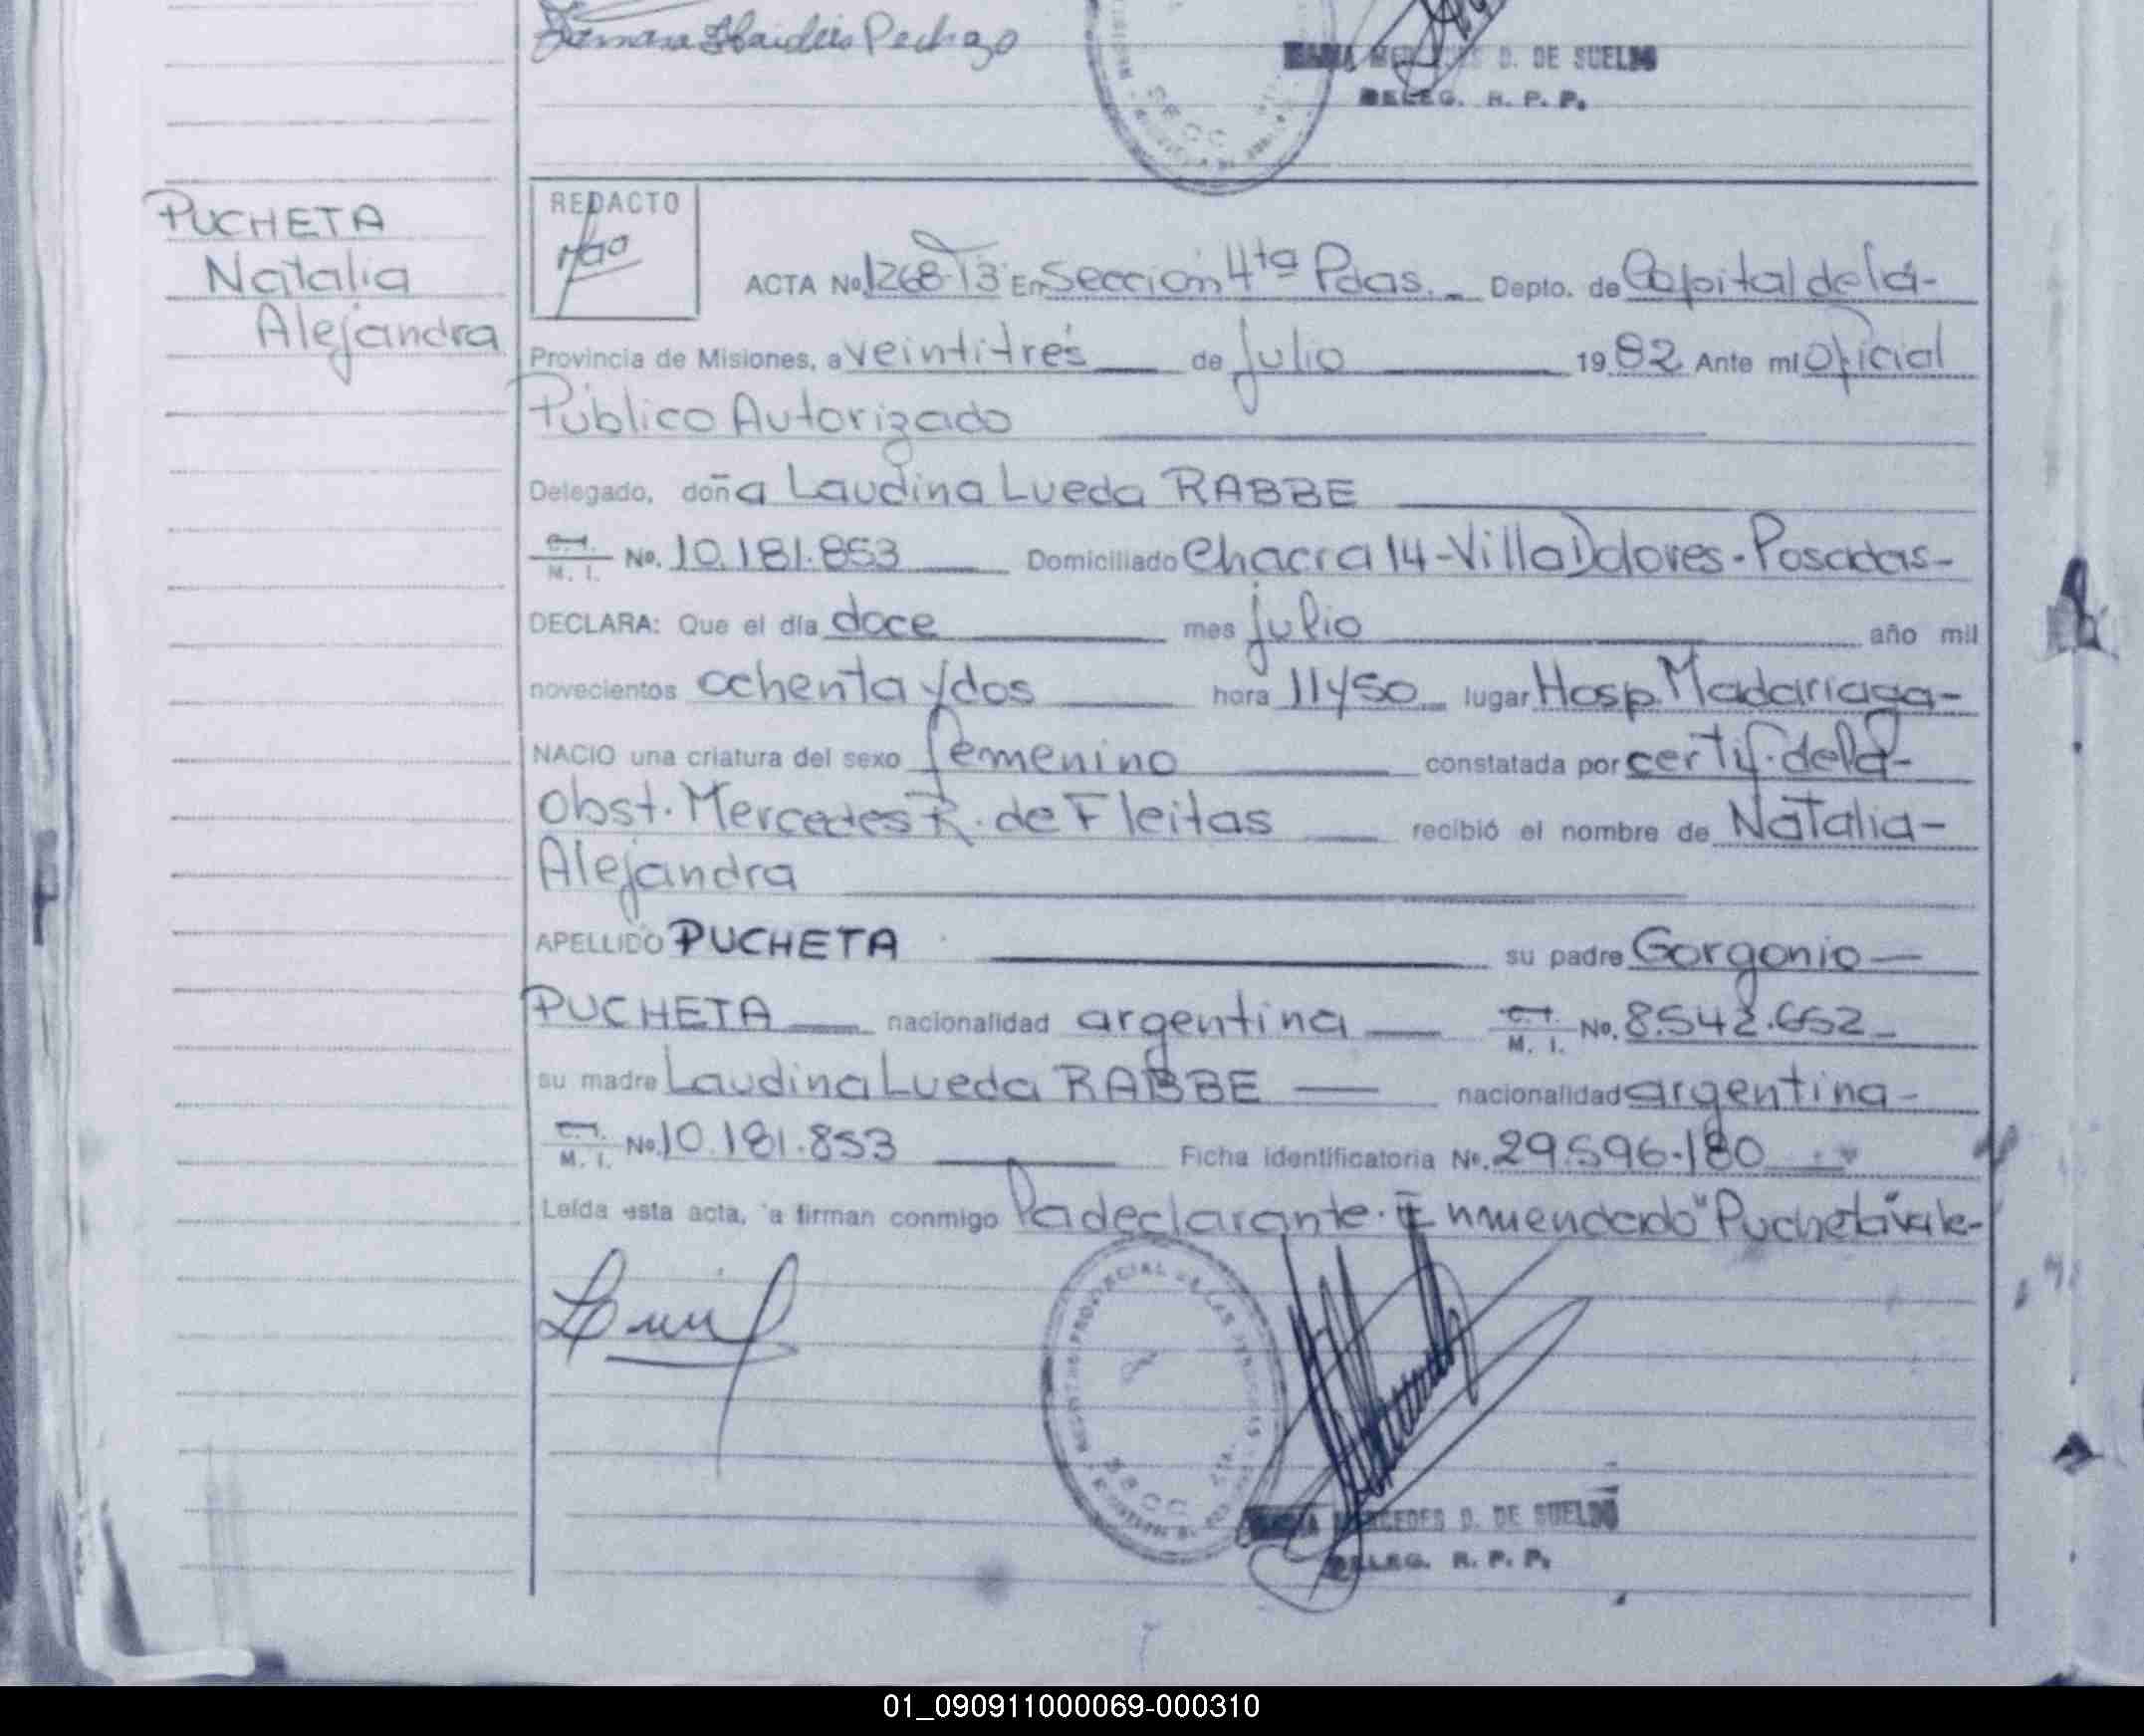 Pedrozo
MERCEDES D. DE SUELDO
DELEG. R. P. P.
SECC
PUCHETA
Natalia
Alejandra
REDACTO
ACTA No 1268 T3 En Sección 4ta Pdas. _ Depto. de Capital de la-
Provincia de Misiones, a veintitrés de julio 1982 Ante mí Oficial
Público Autorizado
Delegado, doña Laudina Lueda RABBE
C.I. M. I. No. 10.181.853 Domiciliado Chacra 14-Villa Dolores-Posadas-
DECLARA: Que el día doce mes julio año mil
novecientos ochenta y dos hora 11 y 50 lugar Hosp. Madariaga-
NACIO una criatura del sexo femenino constatada por certif. de la-
Obst. Mercedes R. de Fleitas recibió el nombre de Natalia-
Alejandra
APELLIDO PUCHETA su padre Gorgonio-
PUCHETA nacionalidad argentina C.I. M. I. No. 8.542.652_
su madre Laudina Lueda RABBE nacionalidad argentina-
C.I. M. I. No. 10.181.853 Ficha identificatoria No. 29.596.180
Leída esta acta, la firman conmigo la declarante. Enmendado "Pucheta" vale-
REGISTRO PROVINCIAL DE LAS PERSONAS
SECC 4TA
MERCEDES D. DE SUELDO
DELEG. R. P. P.
01_090911000069-000310